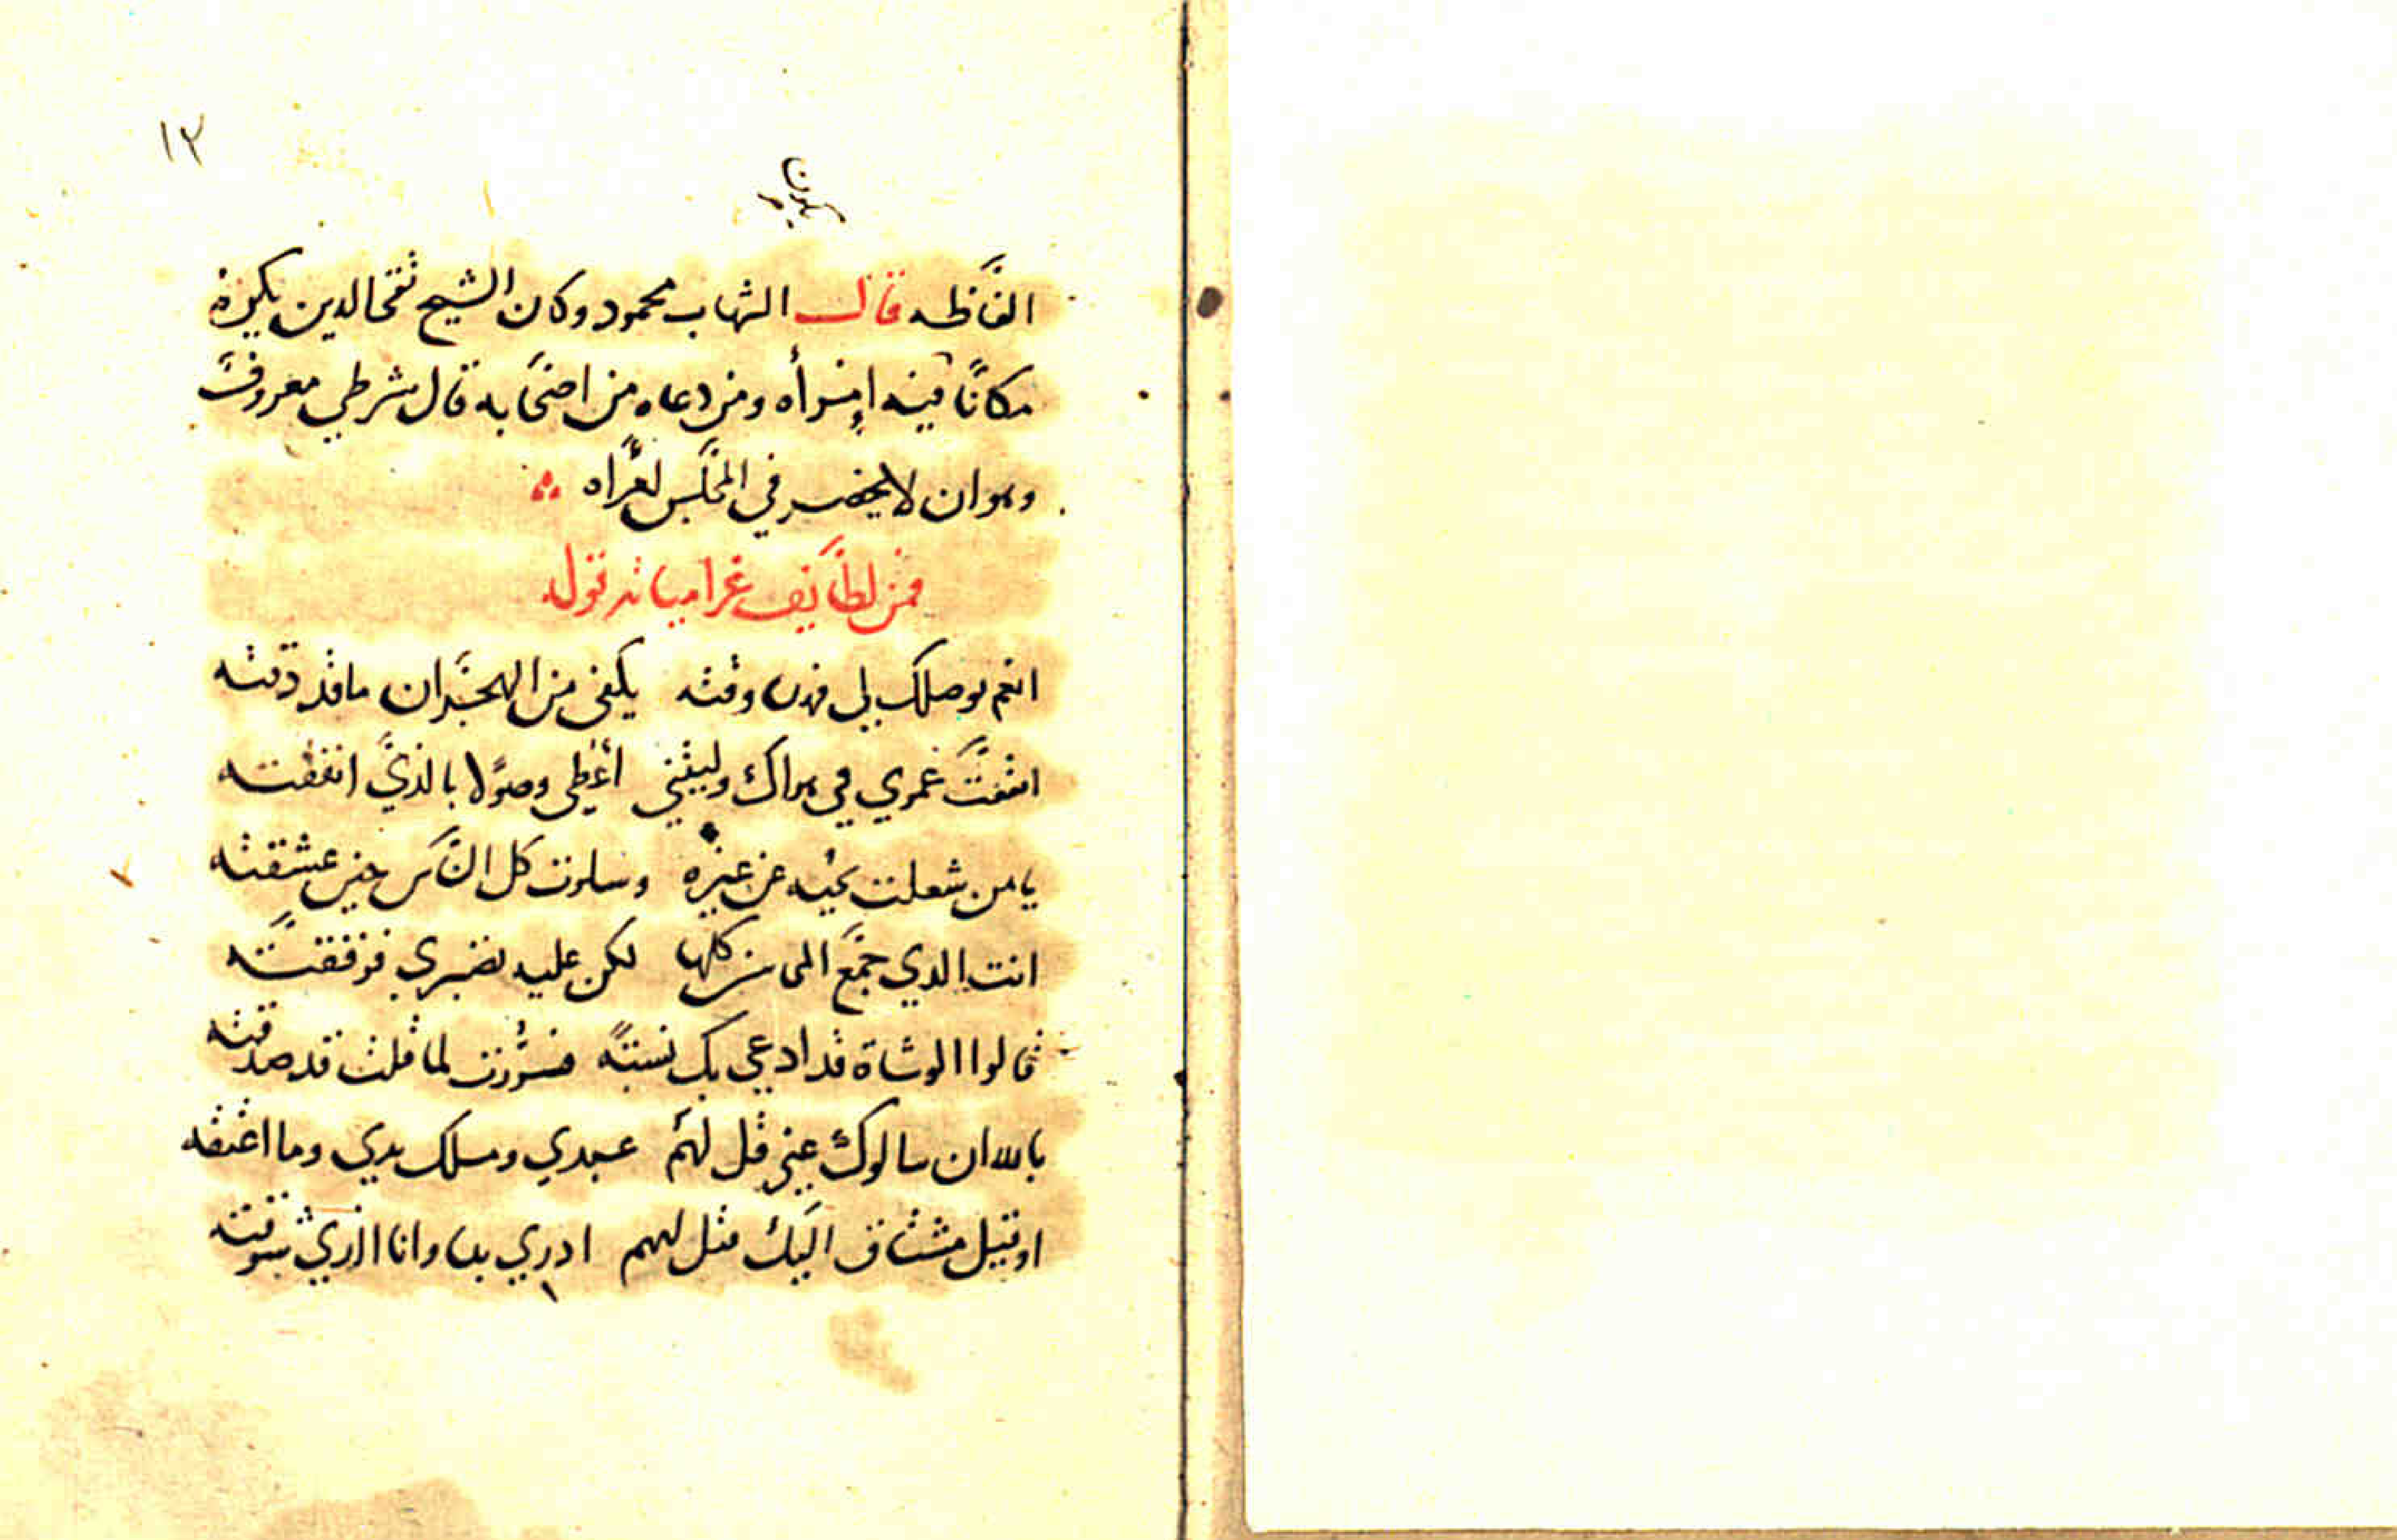 ١٣
الفاظه قال الشهاب محمود وكان الشيخ تقي الدين يكره
مكانًا فيه إمرأه ومن دعاه من اصحابه قال شرطي معروف
وهو ان لا يحضر في المجلس امرأه
فمن لطايف غرامياته قوله
انعم بوصلك لي فهذا وقته يكفي من الهجران ما قد دقته
انفقت عمري في هواك وليتني أعطى وصولا بالذي انفقته
يا من شغلت بحبه عن غيره وسلوت كل الناس حين عشقته
انت الدي جمع المحاسن كلها لكن عليه تصبري فرقته
قالوا الوشاة قد ادعي بك نسبة فسررت لما قلت قد صدقته
بالله ان سالوك عني قل لهم عبدي وملك يدي وما اعتقه
او قيل مشتاق اليك فقل لهم ادري بدا وانا الذي شوقته